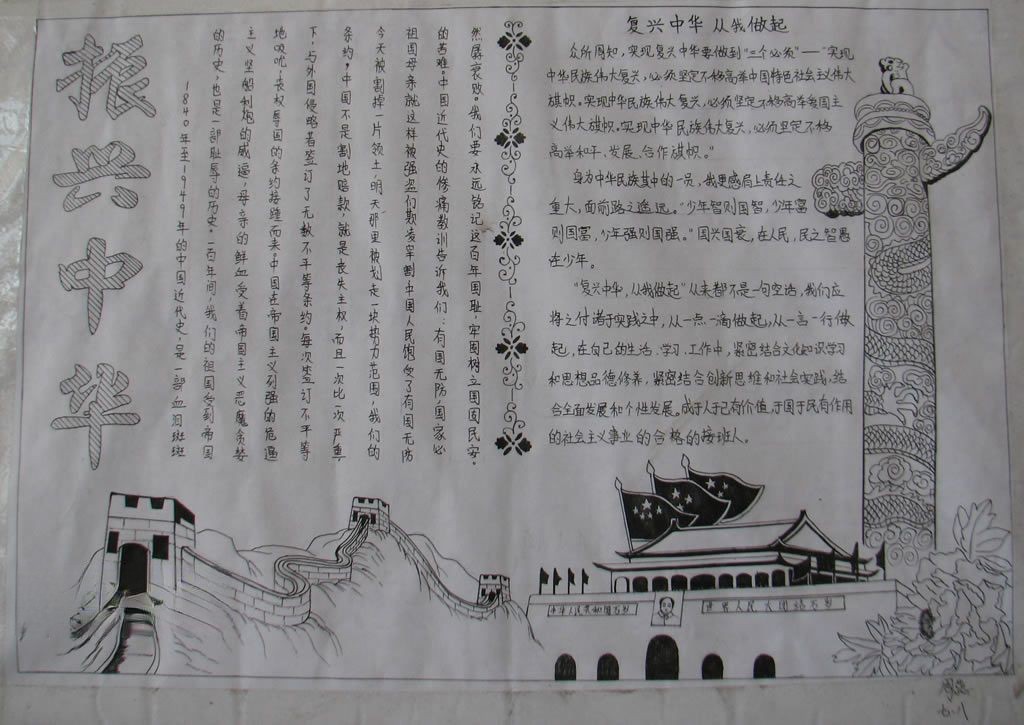 振兴中华
1840年至1949年的中国近代史,是一部血泪斑斑
的历史,也是一部耻辱的历史。一百年间,我们的祖国受到帝国
主义坚船利炮的威逼,母亲的鲜血受着帝国主义恶魔贪婪
地吮吮。丧权辱国的条约接踵而来。中国在帝国主义列强的危逼
下,与外国侵略者签订了无数不平等条约。每次签订不平等
条约,中国不是割地赔款,就是丧失主权,而且一次比一次严重,
今天被割掉一片领土,明天那里被划走一块势力范围,我们的
祖国母亲就这样被强盗们欺凌宰割中国人民饱受了有国无防
的苦难。中国近代史的惨痛教训告诉我们:有国无防,国家必
然孱衰败。我们要永远铭记这百年国耻,牢固树立国固民安。
复兴中华 从我做起
众所周知,实现复兴中华要做到“三个必须”——“实现
中华民族伟大复兴,必须坚定不移高举中国特色社会主义伟大
旗帜。实现中华民族伟大复兴,必须坚定不移高举爱国主
义伟大旗帜。实现中华民族伟大复兴,必须坚定不移
高举和平、发展、合作旗帜。”
身为中华民族其中的一员,我更感肩上责任之
重大,面前路之遥远。“少年智则国智,少年富
则国富,少年强则国强。”国兴国衰,在人民,民之智愚
在少年。
“复兴中华,从我做起”从来都不是一句空话,我们应
将之付诸于实践之中,从一点一滴做起,从一言一行做
起,在自己的生活、学习、工作中,紧密结合文化知识学习
和思想品德修养,紧密结合创新思维和社会实践,结
合全面发展和个性发展。成于人于己有价值,于国于民有作用
的社会主义事业的合格的接班人。
中华人民共和国万岁
世界人民大团结万岁